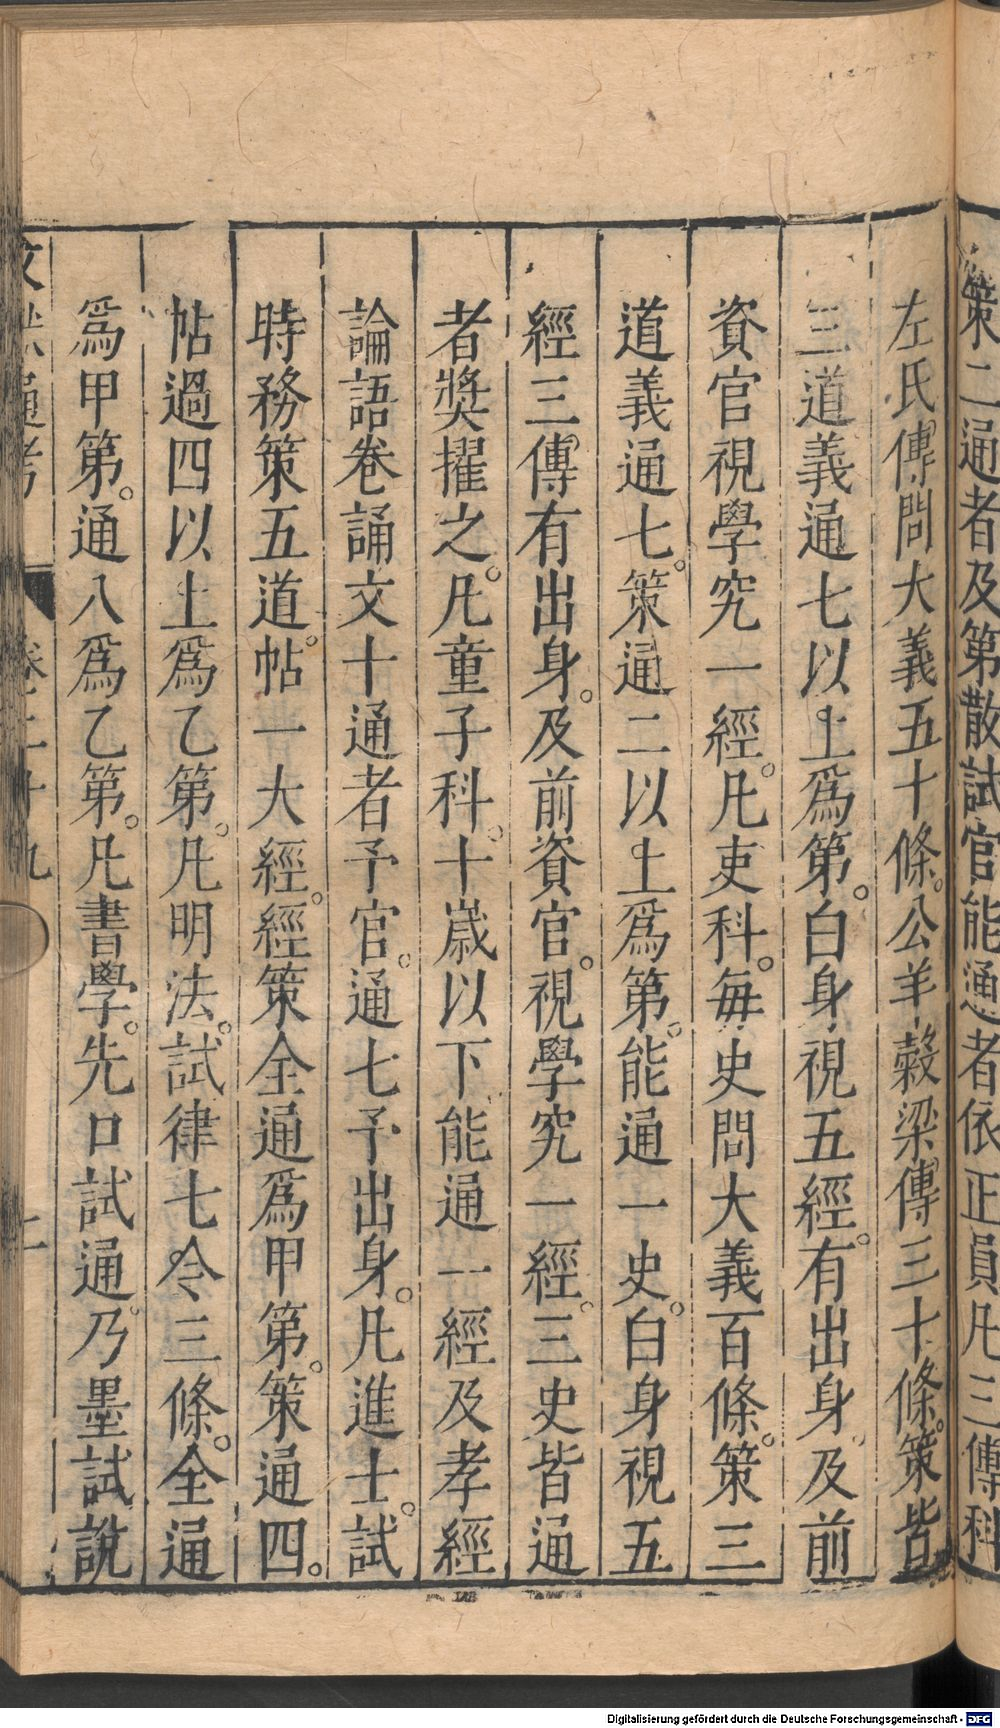 策二通者及第散試官能通者依正員凡三傳科
左氏傳問大義五十條。公羊、穀梁傳三十條。策皆
三道義通七以上爲第。白身視五經。有出身及前
資官視學究一經。凡吏科。每史問大義百條。策三
道義通七。策通二以上爲第。能通一史。白身視五
經三傳有出身。及前資官。視學究一經。三史皆通
者獎擢之。凡童子科。十歲以下能通一經及孝經
論語卷誦文十通者予官。通七予出身。凡進士。試
時務策五道。帖一大經。經策全通爲甲第。策通四。
帖過四以上爲乙第。凡明法。試律七令三條。全通
爲甲第。通八爲乙第。凡書學。先口試通。乃墨試說
通考
卷二十九
Digitalisierung gefördert durch die Deutsche Forschungsgemeinschaft - DFG